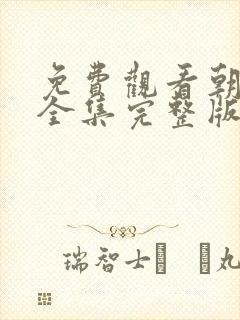 免費觀看朝
全集完整版
瑞智士 丸